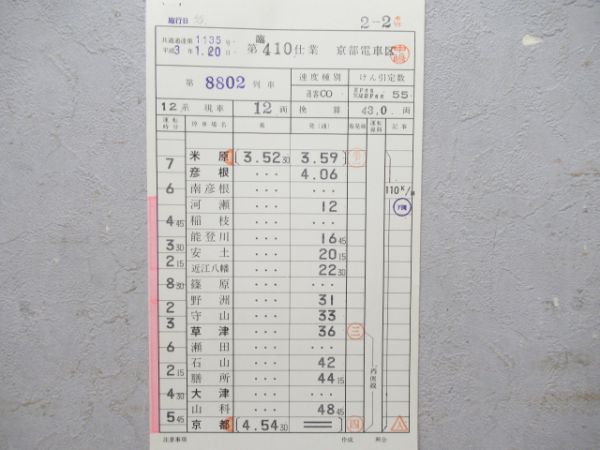 施行日 2-2
共通通達第1135号 平成3年1.20日 臨 第410仕業 京都電車区
第 8802 列車 速度種別 けん引定数
通客C0 55
12系 現車 12 両 換算 43.0 両
運転時分 停車場名 着 発(通) 着発線 運転線路 記事
米原 3.52 30 3.59
7
彦根 ・・・ 4.06
6 南彦根 ・・・ ・・・ 110K/
河瀬 ・・・ 12
4 45 稲枝 ・・・ ・・・
能登川 ・・・ 16 45
3 30
安土 ・・・ 20 15
2 15
近江八幡 ・・・ 22 30
8 30 篠原 ・・・ ・・・
野洲 ・・・ 31
2
守山 ・・・ 33
3
草津 ・・・ 36 三
6 瀬田 ・・・ ・・・
石山 ・・・ 42
2 15
膳所 ・・・ 44 15
4 30 大津 ・・・ ・・・
山科 ・・・ 48 45
5 45
京都 4.54 30 四
注意事項 作成 照合